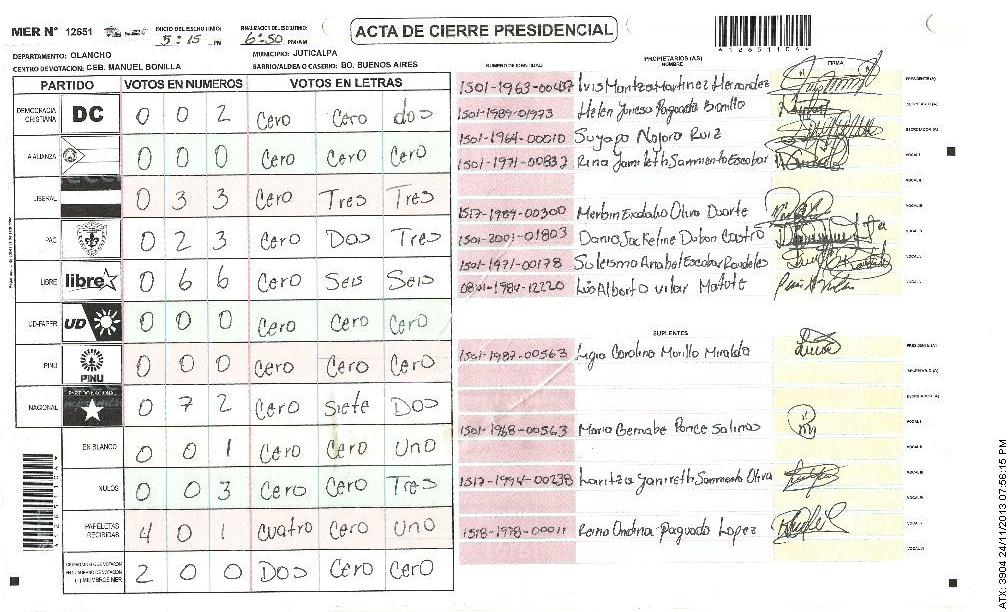 MER Nº 12651
INICIO DEL ESCRUTINIO: 5:15 PM
FINALIZACION DE ESCRUTINIO: 6:50 PM/AM
ACTA DE CIERRE PRESIDENCIAL
DEPARTAMENTO: OLANCHO
MUNICIPIO: JUTICALPA
CENTRO DE VOTACION: CEB. MANUEL BONILLA
BARRIO/ALDEA O CASERIO: BO. BUENOS AIRES
PARTIDO VOTOS EN NUMEROS VOTOS EN LETRAS
DEMOCRACIA CRISTIANA DC 0 0 2 Cero Cero dos
LA ALIANZA 0 0 0 Cero Cero Cero
LIBERAL 0 3 3 Cero Tres Tres
PAC 0 2 3 Cero Dos Tres
LIBRE libre 0 6 6 Cero Seis Seis
UD-FAPER UD 0 0 0 Cero Cero Cero
PINU PINU 0 0 0 Cero Cero Cero
NACIONAL PARTIDO NACIONAL 0 7 2 Cero Siete Dos
EN BLANCO 0 0 1 Cero Cero Uno
NULOS 0 0 3 Cero Cero Tres
PAPELETAS RECIBIDAS 4 0 1 Cuatro Cero Uno
2 0 0 Dos Cero Cero
PROPIETARIOS/AS
NUMERO DE IDENTIDAD NOMBRE FIRMA
1501-1963-00487 PRESIDENTE (A)
1501-1989-01973 SECRETARIO (A)
1501-1964-00010 Suyapa Ruiz ESCRUTADOR (A)
1501-1971-00832 Rina Yamileth Sarmiento Escobar VOCAL I
VOCAL II
1517-1989-00300 Merbin Oliva Duarte VOCAL III
1501-2001-01803 Dania Jackeline Dubon Castro
1501-1971-00178 Anabel Escobar
1984-12220 Luis Alberto
SUPLENTES
1501-1987-00563 Ligia Carolina Murillo Miralda PRESIDENTE (A)
SECRETARIO (A)
ESCRUTADOR (A)
1501-1968-00563 Maria Bernabe Ponce Salinas VOCAL I
VOCAL II
1517-1994-00238 Sarmiento Oliva VOCAL III
1518-1978-00011 Reina Ondina Paguada Lopez
ATX: 3904 24/11/2013 07:56:15 PM